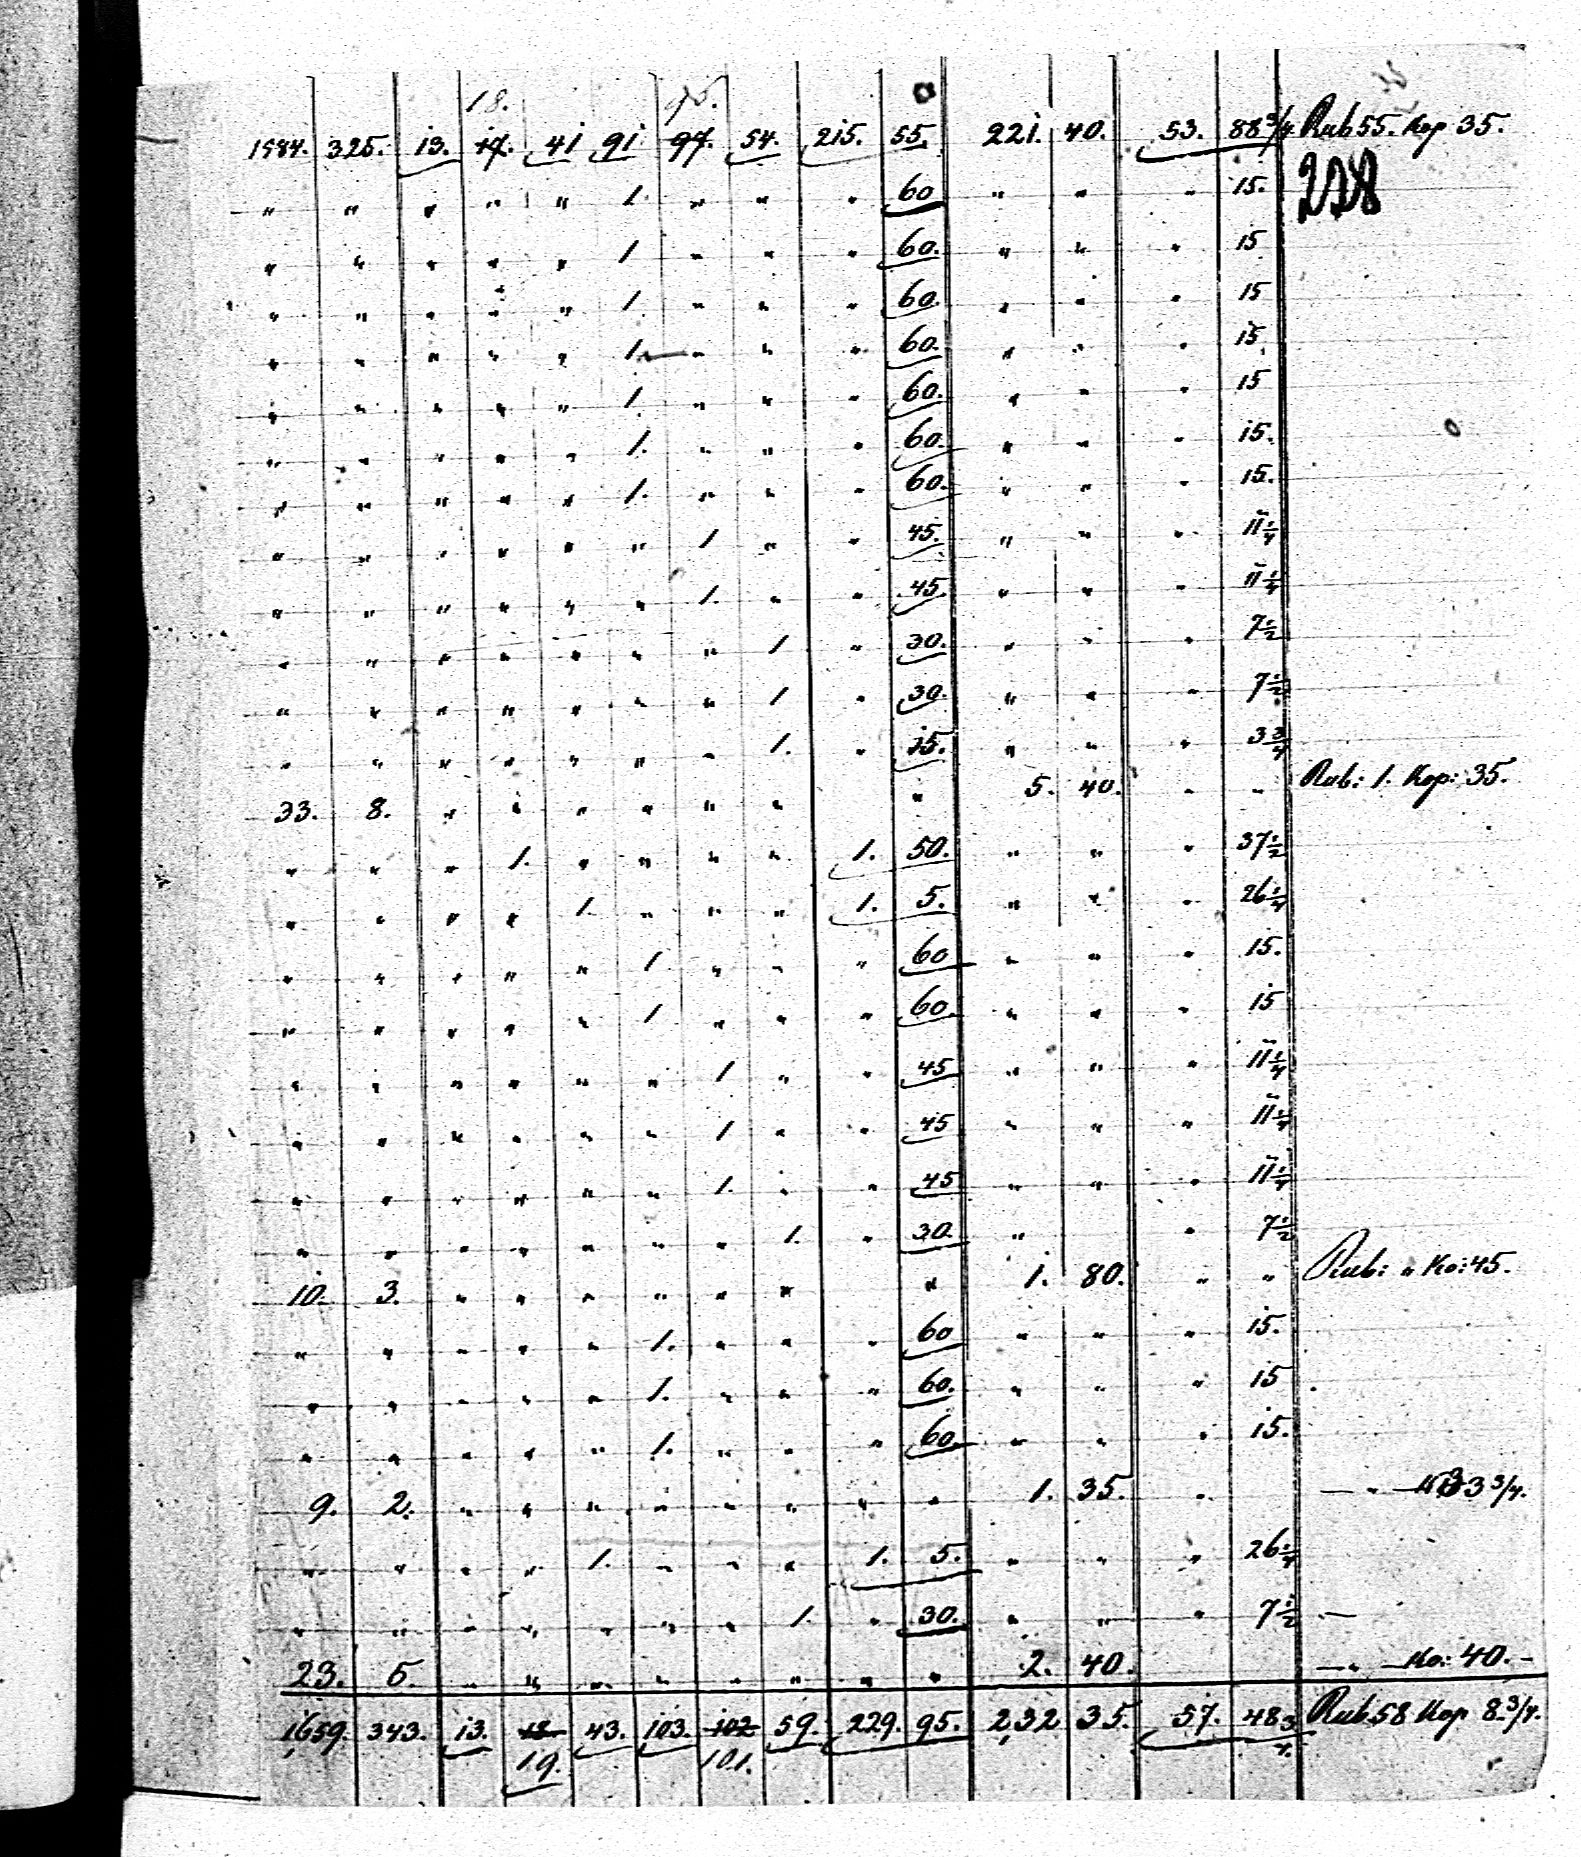 18. 96.
1584. 325. 13. 17. 41 91 97. 54. 215. 55. 221. 40. 53. 88 3/4 Rub 55. Kop 35.
228
" " " " " 1. " " " 60 " " " 15.
" " " " " 1 " " " 60. " " " 15
" " " " " 1. " " " 60. " " " 15
" " " " " 1. " " " 60. " " " 15
" " " " " 1. " " " 60. " " " 15
" " " " " 1. " " " 60. " " " 15.
" " " " " 1. " " " 60. " " " 15.
" " " " " " 1 " " 45. " " " 11 1/4
" " " " " " 1. " " 45. " " " 11 1/4
" " " " " " " 1 " 30. " " " 7 1/2
" " " " " " " 1 " 30. " " " 7 1/2
" " " " " " " 1. " 15. " " " 3 3/4
33. 8. " " " " " " " 5. 40. " " Rub: 1. Kop: 35.
" " " 1. " " " " 1. 50. " " " 37 1/2
" " " " 1. " " " 1. 5. " " " 26 1/4
" " " " " 1. " " " 60 " " " 15.
" " " " " 1. " " " 60. " " " 15
" " " " " " 1 " " 45 " " " 11 1/4
" " " " " " 1 " " 45 " " " 11 1/4
" " " " " " 1. " " 45 " " " 11 1/4
" " " " " " " 1. " 30. " " 7 1/2
10. 3. " " " " " " " 1. 80. " " Rub: " Ko: 45.
" " " " " 1. " " " 60 " " " 15.
" " " " " 1. " " " 60. " " " 15
" " " " " 1. " " " 60. " " " 15.
9. 2. " " " " " " " " 1. 35. " — " — 33 3/4.
" " " " 1. " " " 1. 5. " " " 26 1/4
" " " " " " " 1. " 30. " " " 7 1/2 —
23. 5. " " " " " " " " 2. 40. — " — Ko: 40. —
1659. 343. 13. 18 43. 103. 102 59. 229. 95. 232 35. 57. 48 3/4. Rub. 58 Kop 8. 3/4.
19. 101.